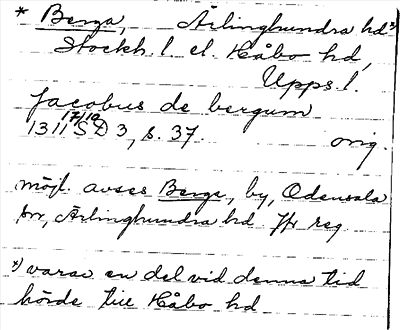 * Berga, Ärlinghundra hd *)
Stockh. l. el. Håbo hd,
Upps. l.
Jacobus de bergum
1311 17/10 SD 3, s. 37. orig.
möjl. avses Berga, by, Odensala
sn, Ärlinghundra hd jfr reg
*) varav en del vid denna tid
hörde till Håbo hd